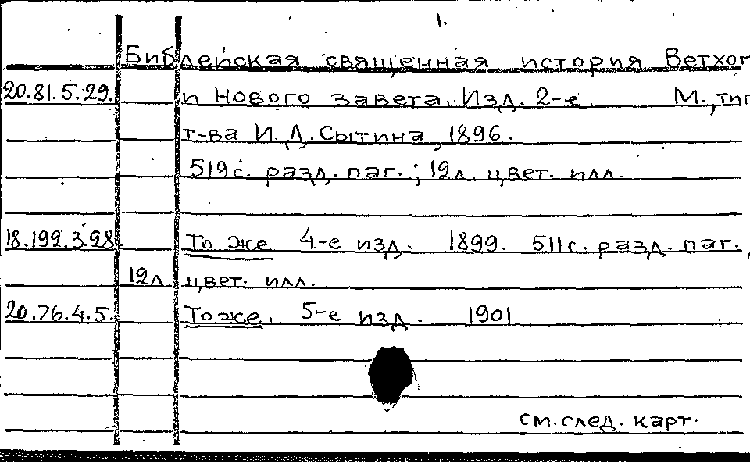 1.
Библейская священная история Ветхог
20.81.5.29. и Нового завета. Изд. 2-е М., тип
т-ва И. Д. Сытина, 1896.
519 с. разд. паг.; 12 л. цвет. илл.
18.199.3.98 То же 4-е изд. 1899. 511 с. разд. паг.,
12 л цвет. илл.
20.76.4.5. То же. 5-е изд. 1901
см. след. карт.